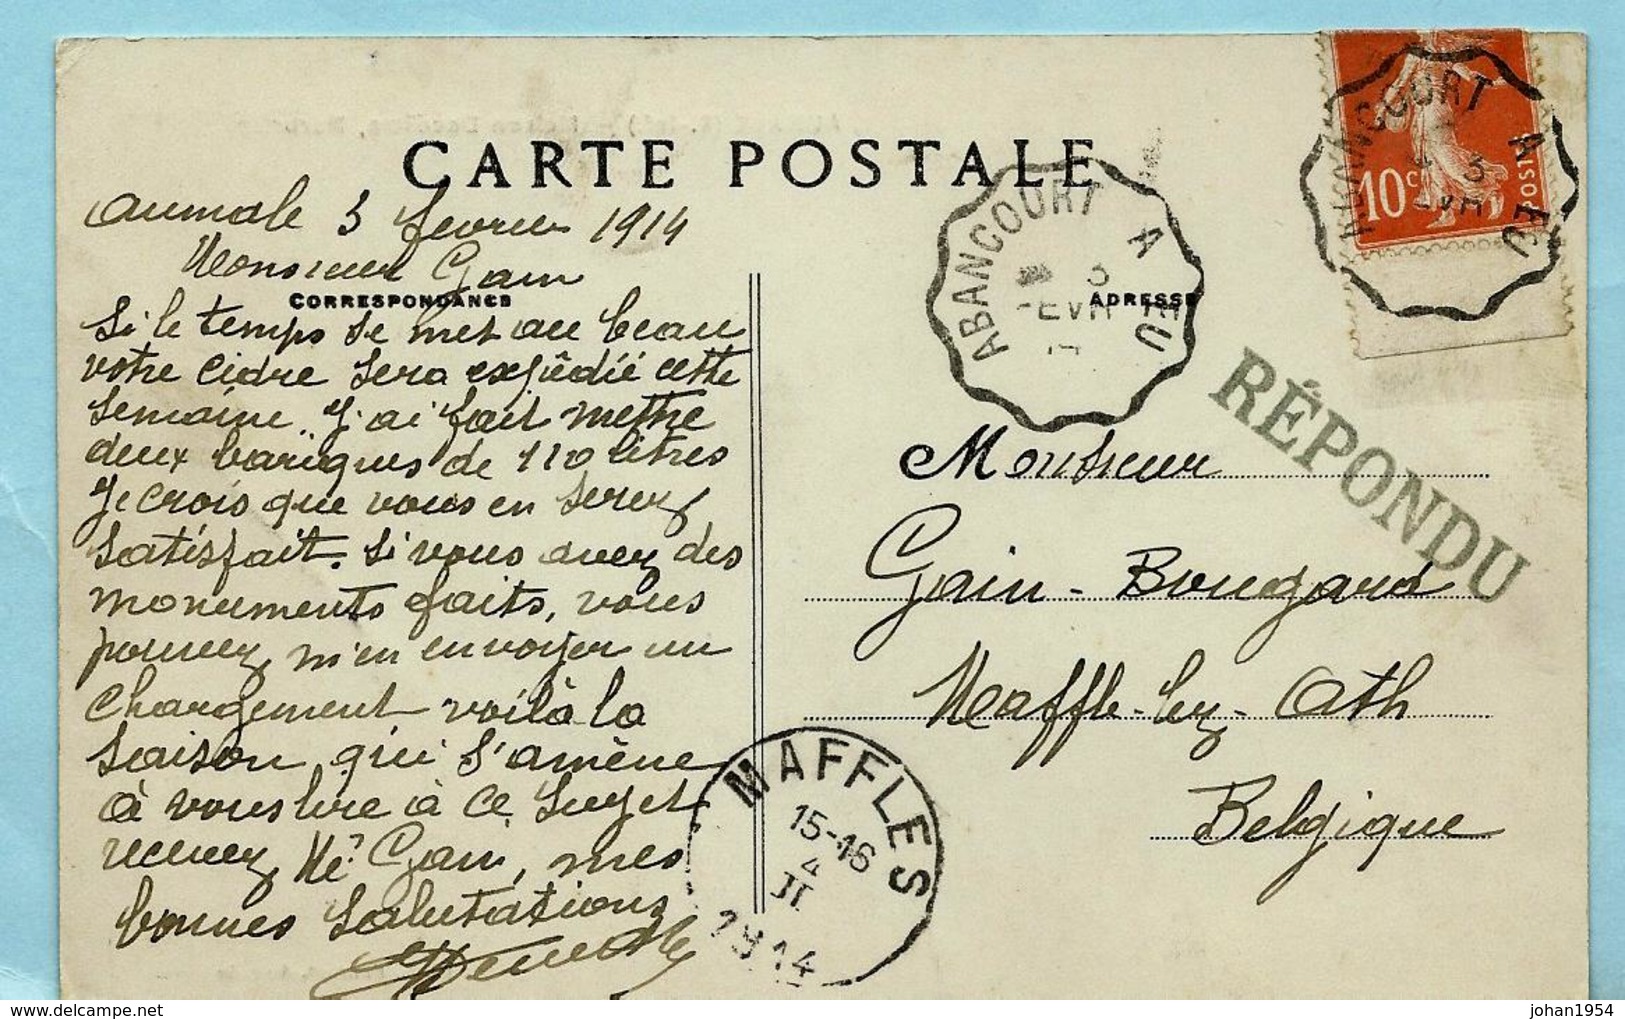 CARTE POSTALE
Aumale 3 fevrier 1914
Monsieur Gain
CORRESPONDANCE
Si le temps se met au beau
votre cidre sera expédié cette
semaine. J'ai fait mettre
deux bariques de 110 litres
Je crois que vous en serez
satisfait. Si vous avez des
monuments faits, vous
pouvez m'en envoyer un
chargement voilà la
saison qui s'amène
à vous lire à ce sujet
recevez Mr Gain, mes
bonnes salutations
ABANCOURT A EU
3
10c
POSTES
ABANCOURT A EU
3
ADRESSE
RÉPONDU
Monsieur
Gain-Bougard
Maffle-lez-Ath
Belgique
MAFFLES
15-16
4
II
1914
johan1954